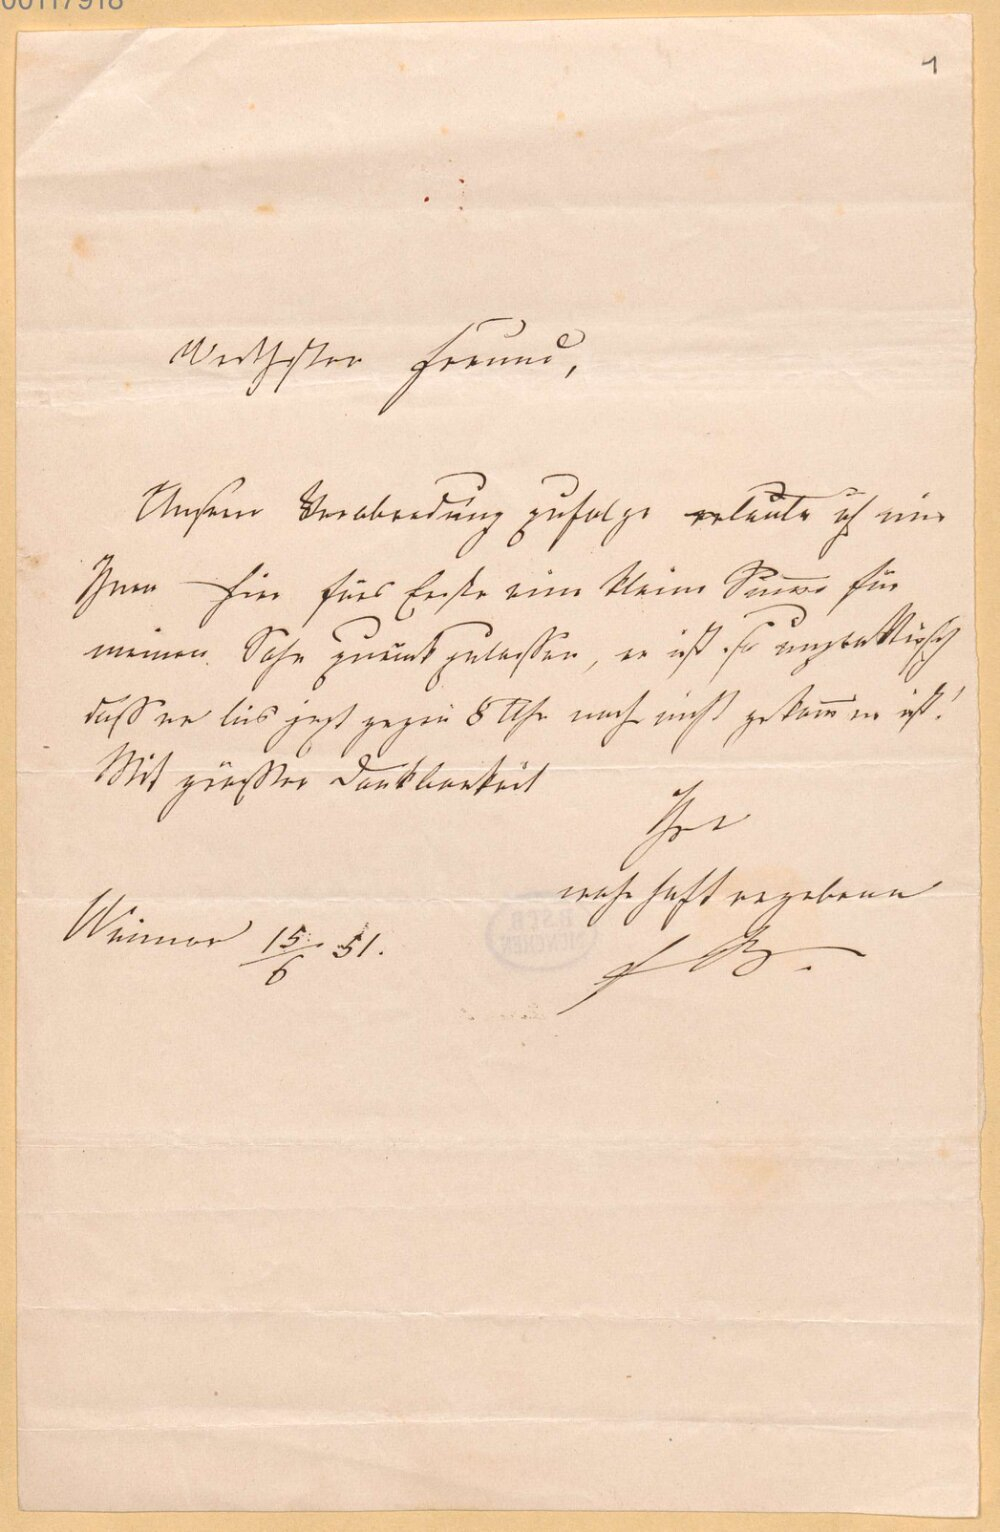 00117918
1
Werthester Freund,
Unserer Verabredung zufolge erlaube ich mir
Ihnen hier fürs Erste eine kleine Summe für
meinen Sohn zurückzulassen, er ist so unpraktisch
daß er bis jezt gegen 8 Uhr noch nicht gekommen ist!
Mit größter Dankbarkeit
Ihr
wahrhaft ergebener
Weimar 15/6 51.